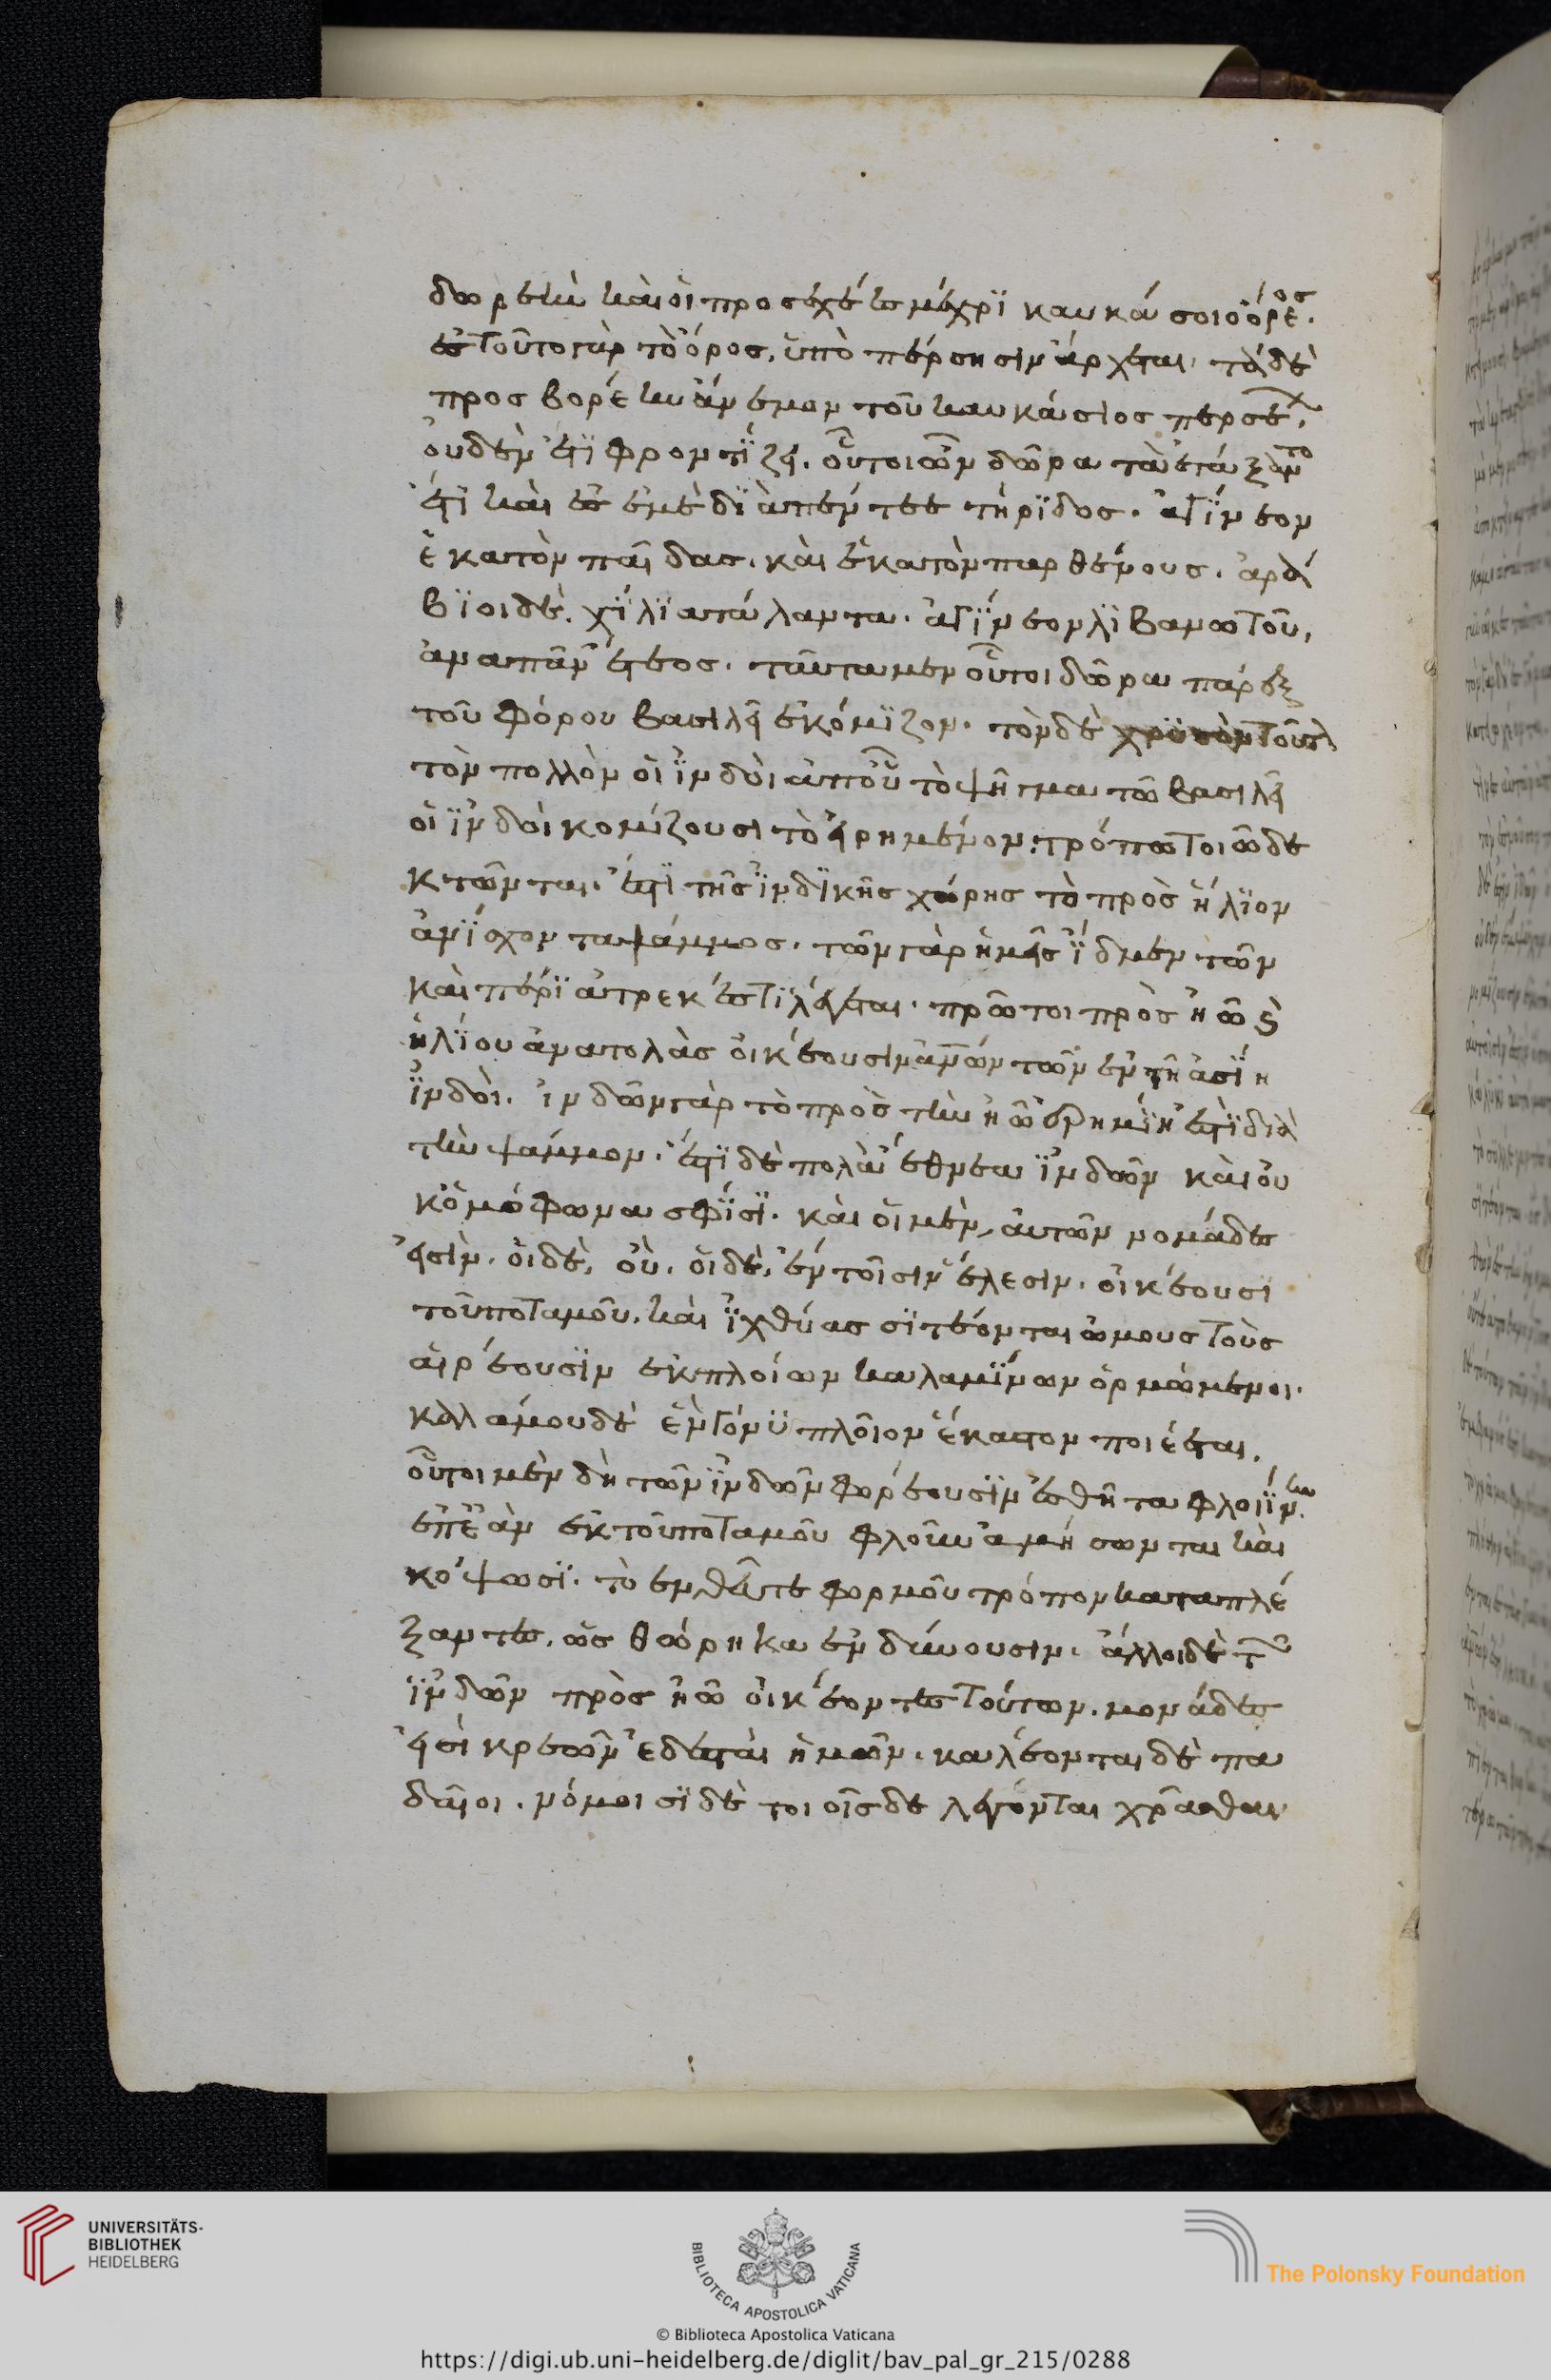 δωρεὴν καὶ οἱ προσεχέες μέχρϊ καυκάσοιο ὄρεος.
ἐς τοῦτο γὰρ τὸ ὄρος, ὑπὸ πέρσησιν ἄρχεται, τὰ δὲ
προς βορέην ἄνεμον τοῦ καυκάσιος περσέων,
ουδὲν ἔτϊ φροντΐζει. οὗτοι ὦν δῶρα τὰ ἐτάξαντο
ἔτι καὶ ἐς ἐμὲ δϊὰ πεντεετηρϊδος. ἀγΐνεον
ἑκατὸν παῖδας. καὶ ἑκατὸν παρθένους. ἀρά
βϊοι δὲ, χΐλϊα τάλαντα. ἀγΐνεον λϊβανωτοῦ,
ἀνα πᾶν ἔτεος. ταῦτα μεν οὗτοι δῶρα πάρεξ
τοῦ φόρου βασιλεῖ ἐκόμϊζον. τὸν δὲ χρϋσὸν τοῦτον
τὸν πολλὸν οἱ ἰνδοὶ ἀπ οὗ τὸ ψῆγμα τῶ βασιλεῖ
οἱ ἰνδοὶ κομίζουσι τὸ εἰρημένον, τρόπω τοιῶδε
κτῶνται. ἔστϊ τῆς ϊνδϊκῆς χώρης τὸ πρὸς ἥλϊον
ἀνΐσχοντα ψάμμος. τῶν γὰρ ἡμεῖς ἴδμεν τῶν
καὶ πέρϊ ἀτρεκές τϊ λέγεται. πρῶτοι πρὸς ἠῶ καὶ
ἡλΐου ἀνατολὰς οἰκέουσιν ἀνθρώπων τῶν ἐν τῆ ἀσΐη
ἰνδοὶ. ἰνδῶν γὰρ τὸ πρὸς τὴν ἠῶ ἐρημΐη ἐστϊ διὰ
τὴν ψάμμον. ἔστϊ δὲ πολὰ ἔθνεα ϊνδῶν καὶ οὐ
κ ὁμόφωνα σφΐσϊ. καὶ οἱ μὲν αὐτῶν νομάδες
εἰσὶν. οἱ δὲ, οὐ. οἱ δὲ, ἐν τοῖσιν ἕλεσιν. οἰκέουσι
τοῦ ποταμοῦ. καὶ ἰχθύας σϊτέονται ὠμους τοὺς
αἱρέουσϊν ἐκ πλοίων καλαμΐνων ὁρμώμενοι.
καλάμου δὲ ἓν γόνϋ πλοῖον ἕκαστον ποιέεται.
οὗτοι μὲν δὴ τῶν ἰνδῶν φορέουσϊν ἐσθῆτα φλοΐνην.
ἐπεὰν ἐκ τοῦ ποταμοῦ φλοῦν ἀμήσωνται καὶ
κόψωσϊ. τὸ ἐνθεῦτε φορμοῦ τρόπον καταπλέ
ξαντες, ὡς θώρηκα ἐνδύνουσιν. ἄλλοι δὲ τῶν
ϊνδῶν πρὸς ἠῶ οἰκέοντες τούτων. νομάδες
εἰσὶ κρεῶν ἐδεσταὶ ἠμῶν. καλέονται δὲ πα
δαῖοι. νόμοισϊ δὲ τοιοῖσδε λέγονται χρᾶσθαι
UNIVERSITÄTS-
BIBLIOTHEK
HEIDELBERG
BIBLIOTECA APOSTOLICA VATICANA
The Polonsky Foundation
© Biblioteca Apostolica Vaticana
https://digi.ub.uni-heidelberg.de/diglit/bav_pal_gr_215/0288